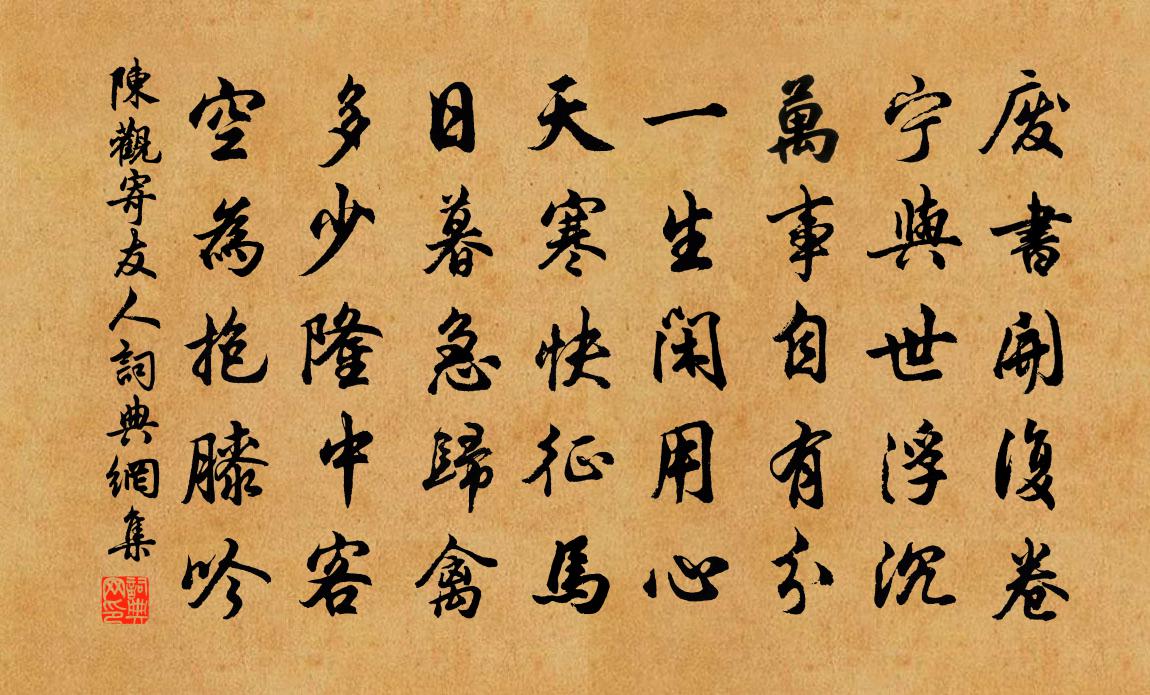 廢書開復卷
宁與世浮沉
萬事自有分
一生閑用心
天寒快征馬
日暮急歸禽
多少隆中客
空為抱膝吟
陳觀寄友人詞典網集
詞典网印